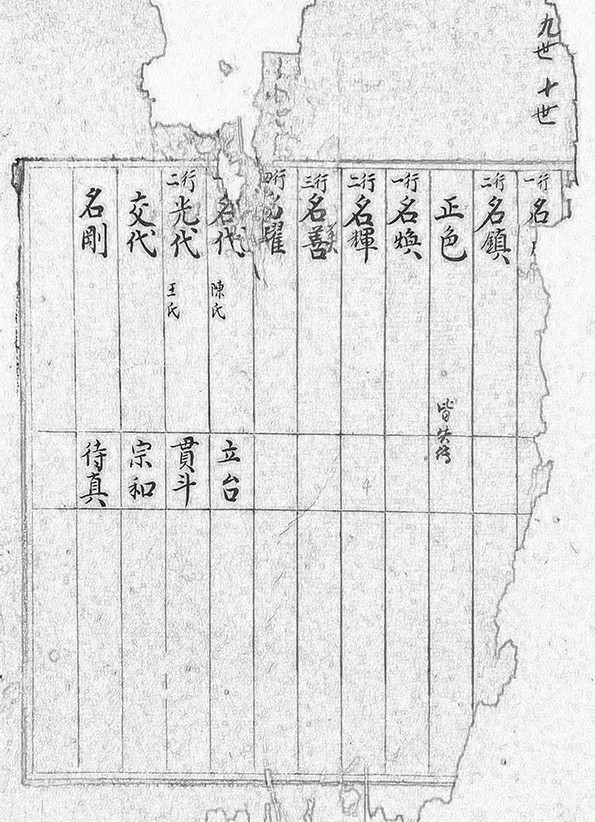 九世 十世
行一 名
行二 名鎮
正色 皆失傳
行一 名煥
行二 名輝
行三 名善
行四 名耀
名代 陳氏 立台
行二 光代 王氏 貫斗
交代 宗和
名剛 待真